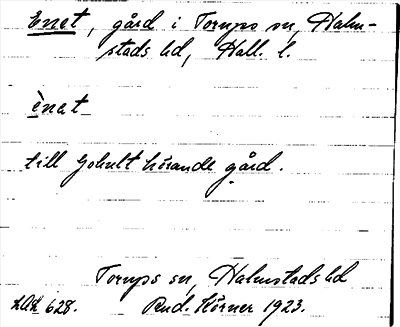 Enet, gård i Torups sn, Halm-
stads hd, Hall. l.
ènat
till Gohult hörande gård.
Torups sn, Halmstads hd
628. Rud. Hörner 1923.